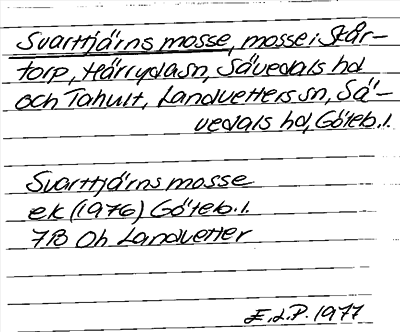 Svarttjärns mosse, mosse i Står-
torp, Härryda sn, Sävedals hd
och Tahult, Landvetters sn, Sä-
vedals hd, Göteb. l.
Svarttjärns mosse
ek (1976) Göteb. l.
7B 0h Landvetter
E.L.P. 1977